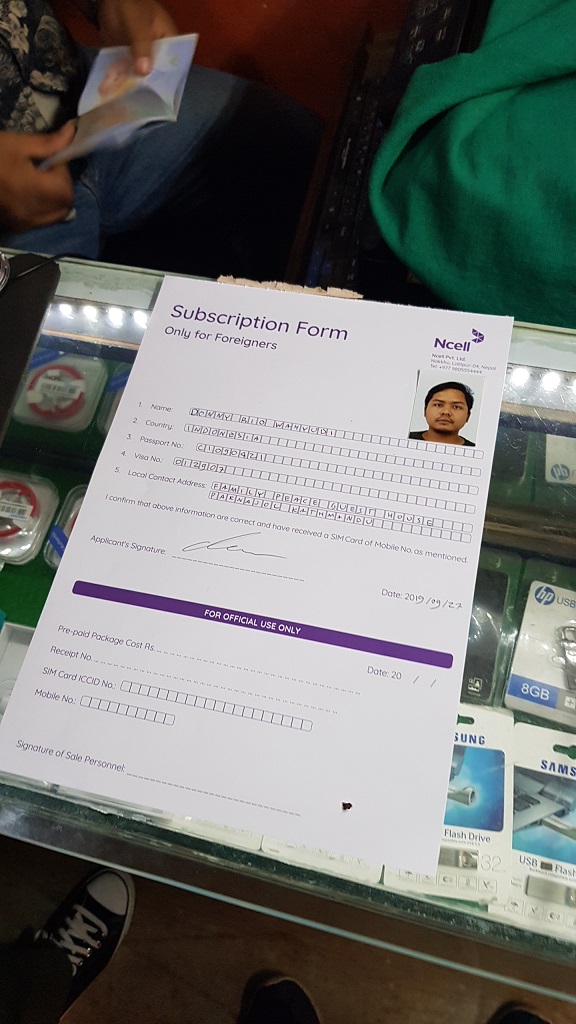 Subscription Form
Only for Foreigners
Ncell
Ncell Pvt. Ltd.
Nakkhu, Lalitpur-04, Nepal
Tel: +977 9805554444
1. Name: DENNY RIO WAHYUDI
2. Country: INDONESIA
3. Passport No.: C1090421
4. Visa No.: D12907
5. Local Contact Address: FAMILY PEACE GUEST HOUSE
PAKNAJOL KATHMANDU
I confirm that above information are correct and have received a SIM Card of Mobile No. as mentioned.
Applicant's Signature:
Date: 2019/09/27
FOR OFFICIAL USE ONLY
Pre-paid Package Cost Rs.
Date: 20 / /
Receipt No.
SIM Card ICCID No.:
Mobile No.:
Signature of Sale Personnel:
hp USB
8GB
SUNG
Flash Drive
32
SAMS
USB Flash